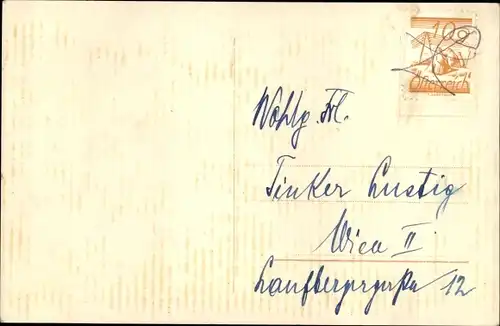 10g
Österreich
Wohlg. Frl.
Tinker Lustig
Wien II
Laufbergergasse 12